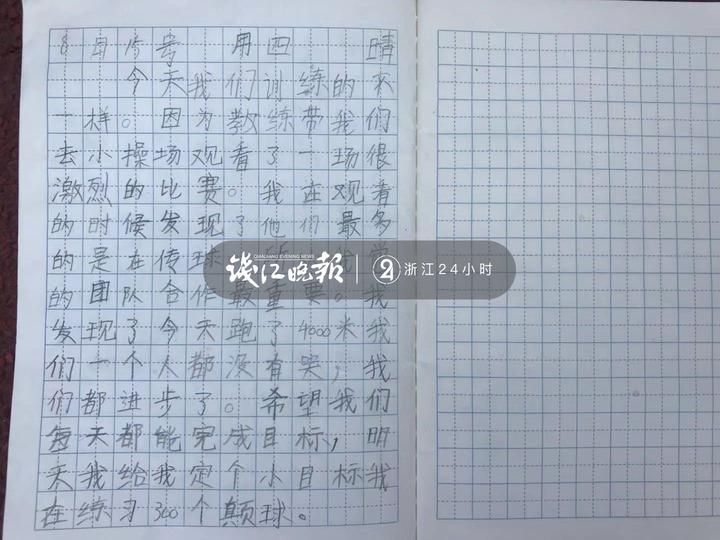 8月15号 周四 晴
今天我们训练的不
一样。因为教练带我们
去小操场观看了一场很
激烈的比赛。我在观看
的时候发现了他们最多
的是在传球
的团队合作最重要。我
发现了今天跑了4000米我
们一个人都没有哭,我
们都进步了。希望我们
每天都能完成目标,明
天我给我定个小目标我
在练习300个颠球。
钱江晚报
QIANJIANG EVENING NEWS
浙江24小时